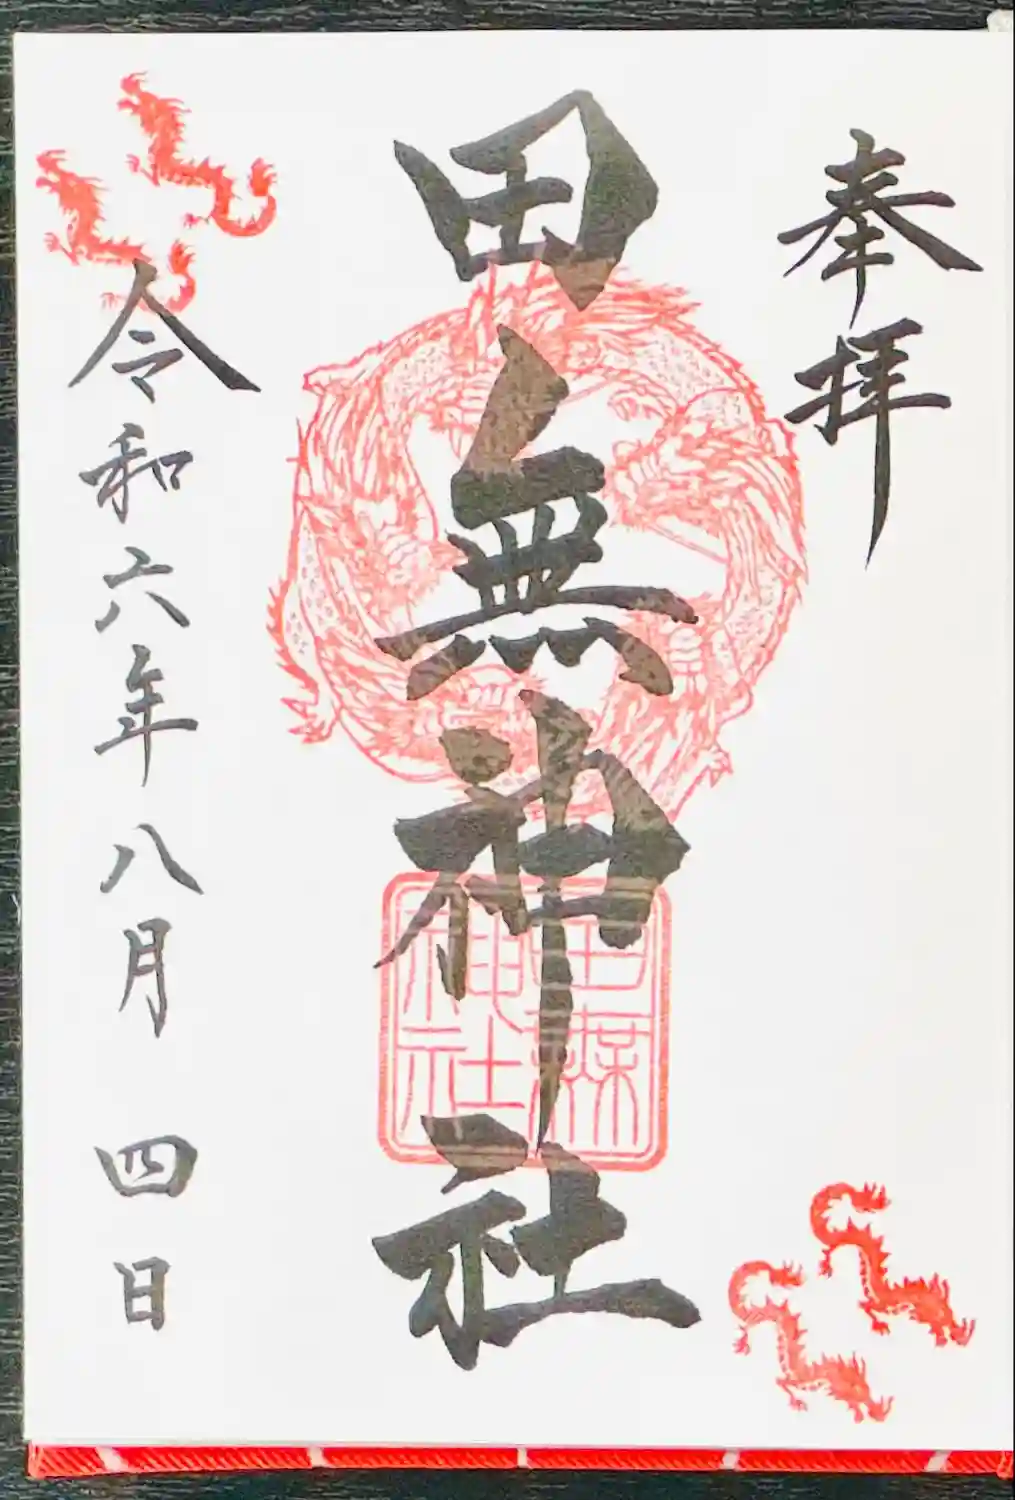 奉拝
田無神社
田無
神社
令和六年八月 四日